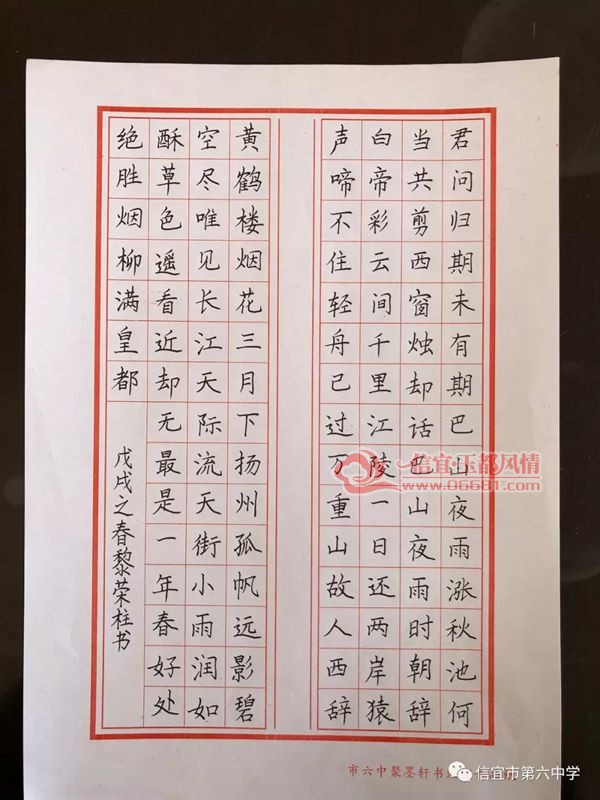 君问归期未有期巴山夜雨涨秋池何
当共剪西窗烛却话巴山夜雨时朝辞
白帝彩云间千里江陵一日还两岸猿
声啼不住轻舟已过万重山故人西辞
黄鹤楼烟花三月下扬州孤帆远影碧
空尽唯见长江天际流天街小雨润如
酥草色遥看近却无最是一年春好处
绝胜烟柳满皇都
戊戌之春黎荣柱书
信宜玉都风情
www.06681.com
市六中聚墨轩书
信宜市第六中学